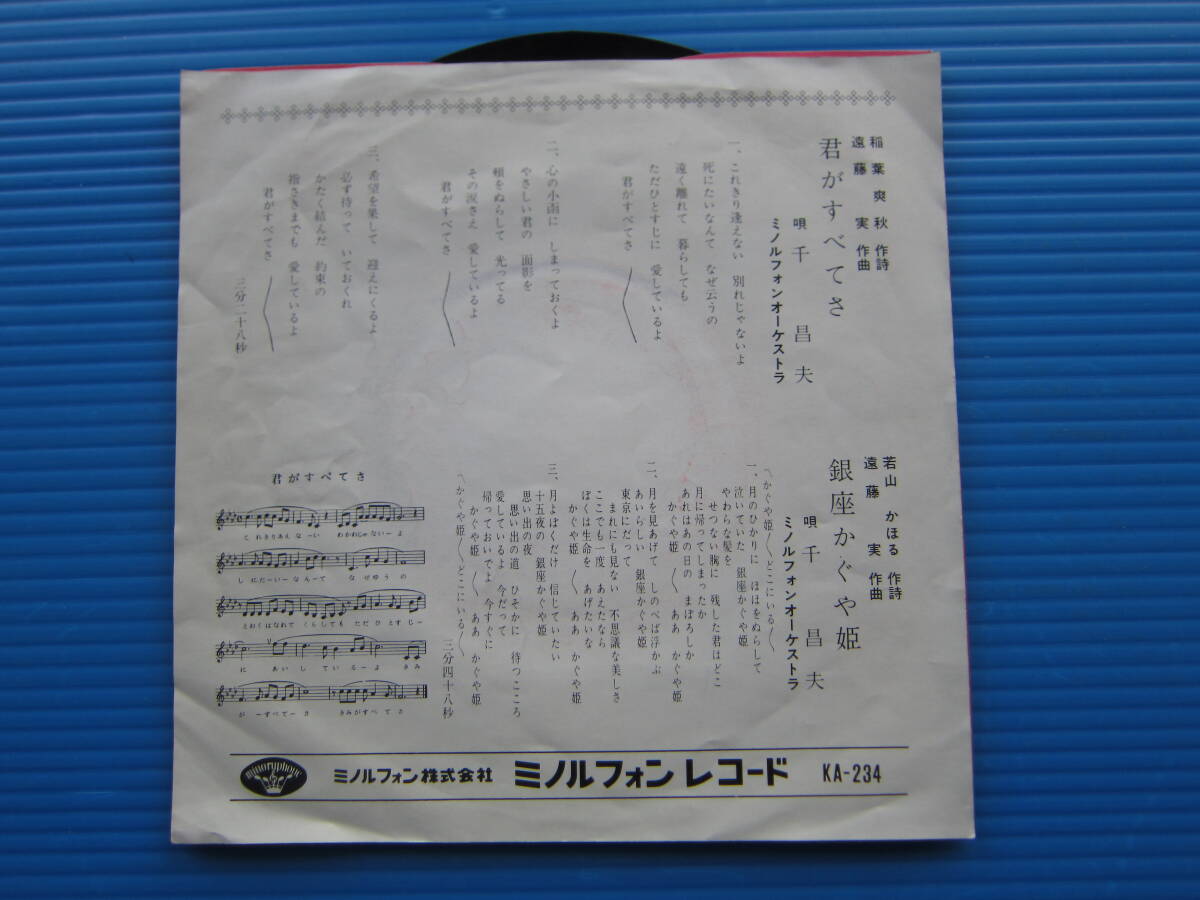 君がすべてさ
稲葉爽秋 作詩
遠藤 実 作曲
唄 千昌夫
ミノルフォンオーケストラ
一、これきり逢えない 別れじゃないよ
死にたいなんて なぜ云うの
遠く離れて 暮らしても
ただひとすじに 愛しているよ
君がすべてさ 〱
二、心の小函に しまっておくよ
やさしい君の 面影を
頬をぬらして 光ってる
その涙さえ 愛しているよ
君がすべてさ 〱
三、希望を果して 迎えにくるよ
必ず待って いておくれ
かたく結んだ 約束の
指さきまでも 愛しているよ
君がすべてさ 〱
三分二十八秒
銀座かぐや姫
若山かほる 作詩
遠藤 実 作曲
唄 千昌夫
ミノルフォンオーケストラ
〽かぐや姫〱どこにいる〱
一、月のひかりに ほほをぬらして
泣いていた 銀座かぐや姫
やわらな髪を
せつない胸に 残した君はどこ
月に帰ってしまったか
あれはあの日の まぼろしか
かぐや姫 〱 ああ かぐや姫
二、月を見あげて しのべば浮かぶ
あいらしい 銀座かぐや姫
東京にだって
まれにも見ない 不思議な美しさ
ここでも一度 あえたなら
ぼくは生命を あげたいな
かぐや姫 〱 ああ かぐや姫
三、月よぼくだけ 信じていたい
十五夜の 銀座かぐや姫
思い出の夜
思い出の道 ひそかに 待つこころ
愛しているよ 今だって
帰っておいでよ 今すぐに
かぐや姫 〱 ああ かぐや姫
〽かぐや姫〱どこにいる〱
三分四十八秒
君がすべてさ
これきりあえなーい わかれじゃないーよ
しにたーいーなんーて なぜゆうの
とおくはなれて くらしても ただひとすじー
に あいしているーよ きみ
がーすべてーさ きみがすべてさ
minoruphone
ミノルフォン株式会社 ミノルフォンレコード KA-234